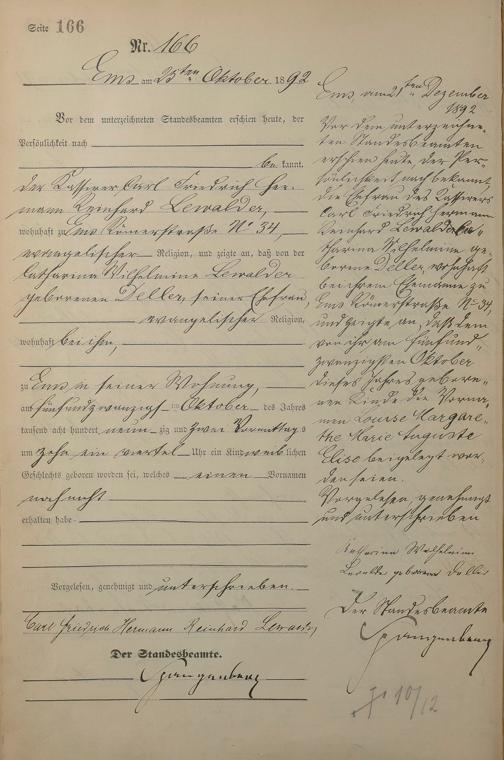 Seite 166
Nr. 166
Ems am 25ten Oktober 1892
Vor dem unterzeichneten Standesbeamten erschien heute, der
Persönlichkeit nach
be kannt,
der Kassierer Carl Friedrich Her-
mann Reinhard Lewalder,
wohnhaft zu Ems Römerstraße No 34,
evangelischer Religion, und zeigte an, daß von der
Catharina Wilhelmine Lewalder
geborenen Deller, seiner Ehefrau
evangelischer Religion,
wohnhaft bei ihm,
zu Ems in seiner Wohnung,
am fünfundzwanzigsten Oktober des Jahres
tausend acht hundert neun zig und zwei Vormittags
um zehn ein viertel Uhr ein Kind weiblichen
Geschlechts geboren worden sei, welches einen Vornamen
noch nicht
erhalten habe
Vorgelesen, genehmigt und unterschrieben.
Carl Friedrich Hermann Reinhard Lewalder
Der Standesbeamte.
Spangenberg
Ems, am 21ten Dezember
1892
Vor dem unterzeichne-
ten Standesbeamten
erschien heute, der Per-
sönlichkeit nach bekannt,
die Ehefrau des Kassierers
Carl Friedrich Hermann
Reinhard Lewalder Ca-
tharina Wilhelmine ge-
borene Deller, wohnhaft
bei ihrem Ehemanne zu
Ems Römerstraße No 34,
und zeigte an, daß dem
von ihr am fünfund-
zwanzigsten Oktober
dieses Jahres gebore-
nen Kinde die Vorna-
men Louise Margare-
the Marie Auguste
Elise beigelegt wor-
den seien.
Vorgelesen, genehmigt
und unterschrieben
Katharina Wilhelmine
Lewalder geborene Deller
Der Standesbeamte
Spangenberg
10/12